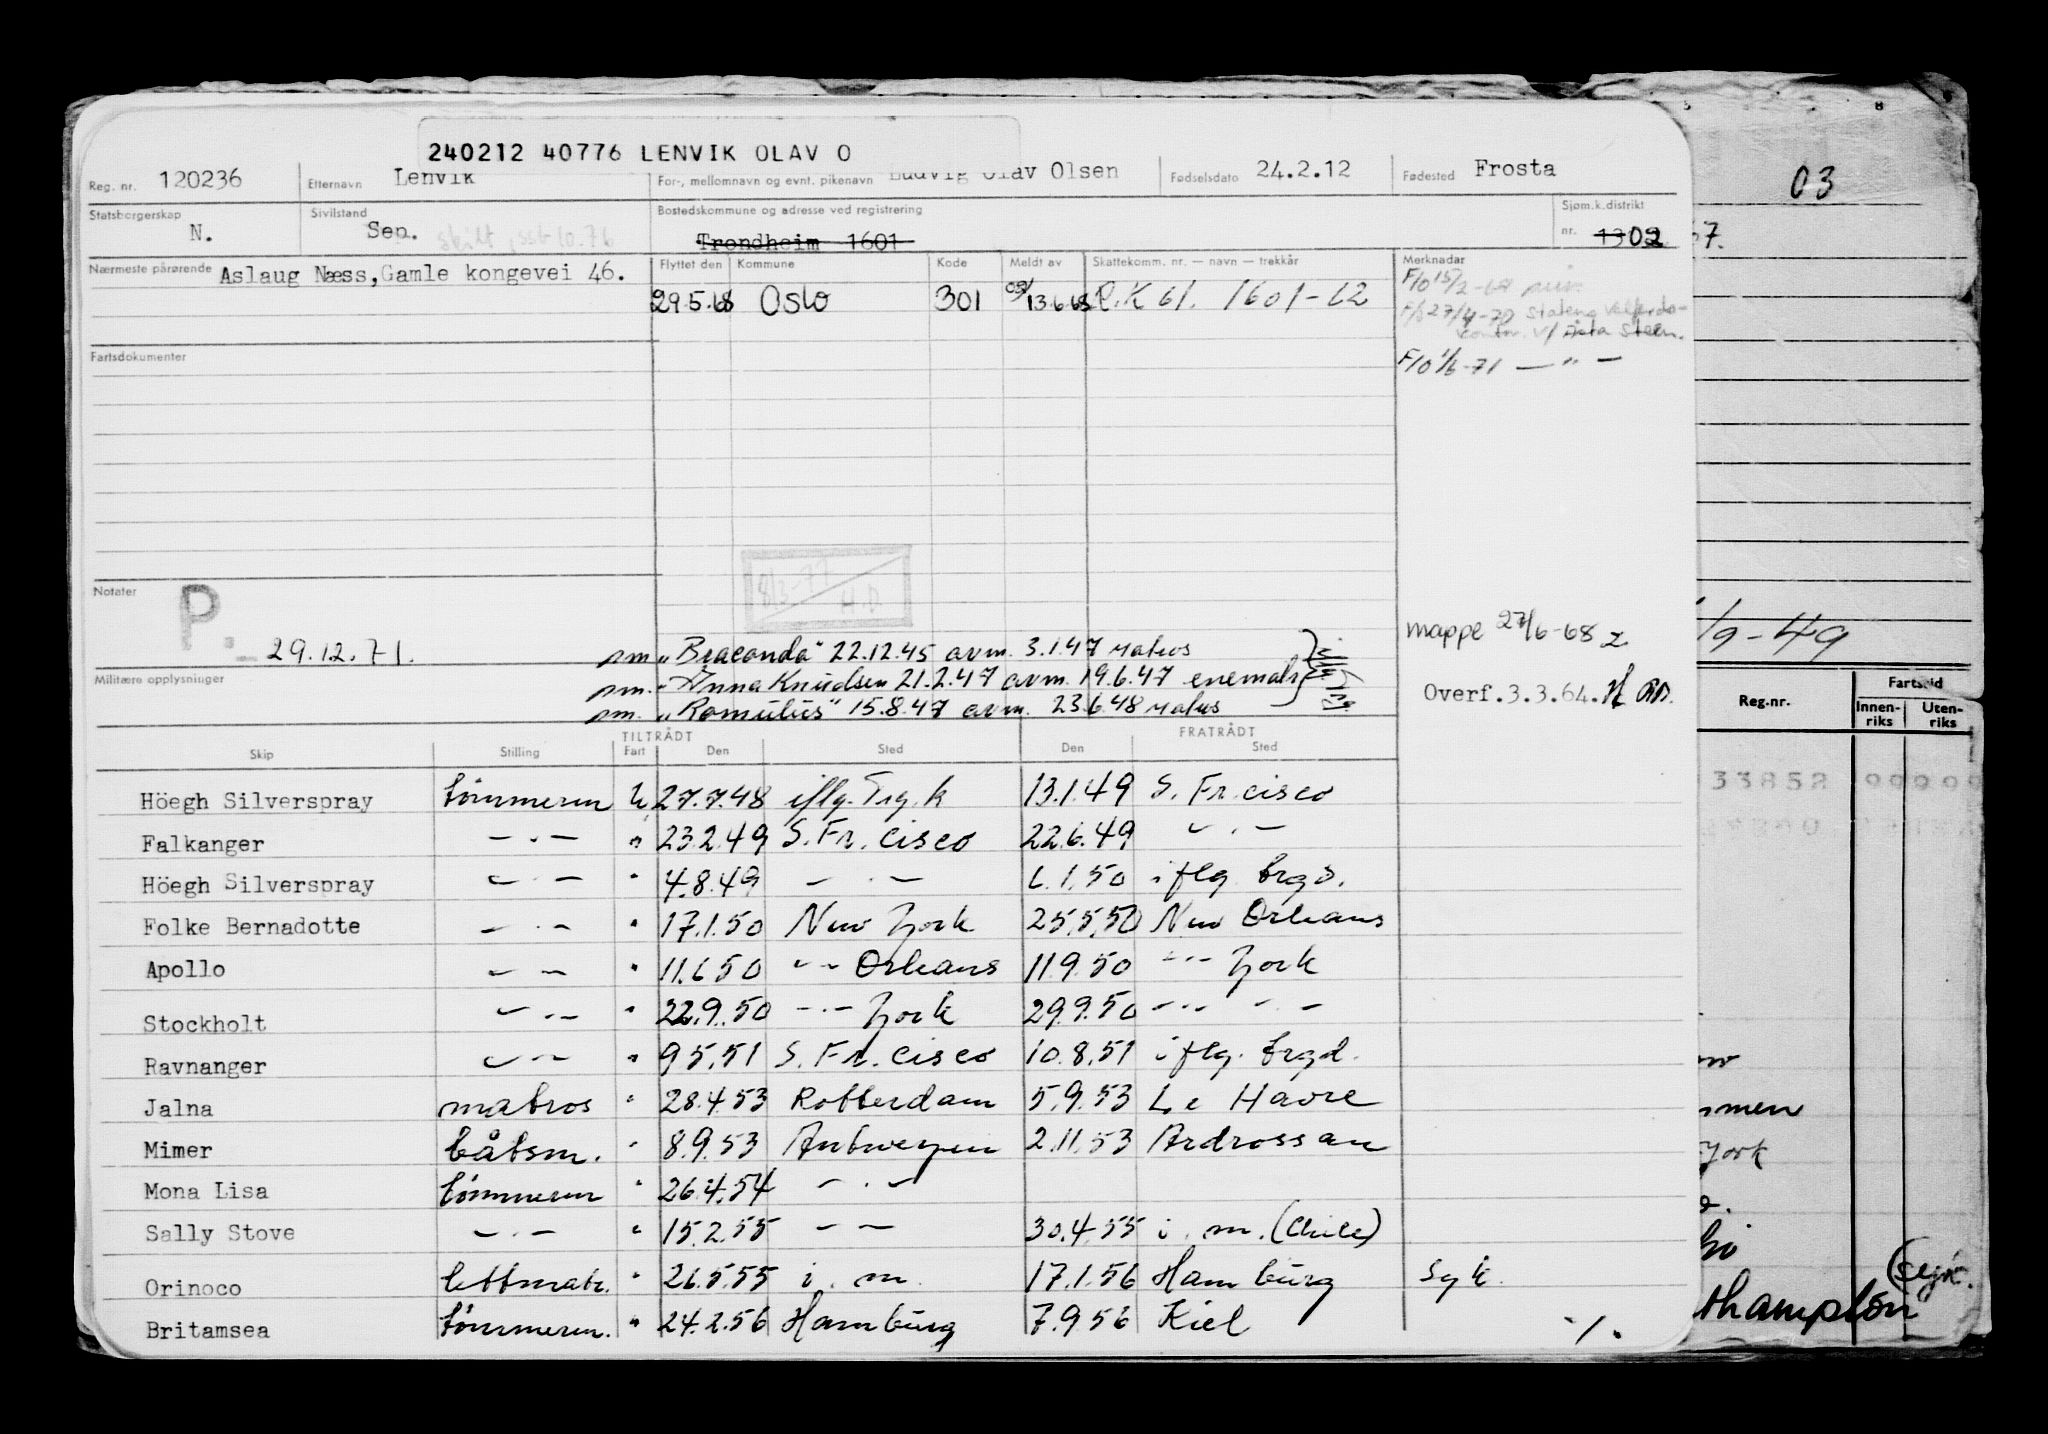 240212 40776 LENVIK OLAV O
Reg. nr. 120236 Etternavn Lenvik For-, mellomnavn og evnt. pikenavn Ludvig Olav Olsen Fødselsdato 24.2.12 Fødested Frosta
Statsborgerskap N. Sivilstand Sep. skilt Bostedskommune og adresse ved registrering Trondheim 1601 Sjøm.k.distrikt nr. 02
Nærmeste pårørende Aslaug Næss, Gamle kongevei 46. Flyttet den Kommune Kode Meldt av Skattekomm. nr. — navn — trekkår Merknader
29.5.68 Oslo 301 13.6.68 R.K 61. 1601-62
F/O 15/2-68
27/4-70 Statens Velferds-
kontor v/ Steen.
F/O 1/6-71 — " —
Fartsdokumenter
8/3-77
H.D.
Notater P. 29.12.71.
mappe 27/6-68
sm. "Braconda" 22.12.45 avm. 3.1.47 matros
Militære opplysninger
sm. "Anna Knudsen 21.2.47 avm. 19.6.47 enemals
sm. "Romulus" 15.8.47 avm. 23.6.48 matros
Overf. 3.3.64.
TILTRÅDT FRATRÅDT
Skip Stilling Fart Den Sted Den Sted
Höegh Silverspray tömmerm U 27.7.48 iflg. Trg.k 13.1.49 S. Fr.cisco
Falkanger — . — " 23.2.49 S. Fr. cisco 22.6.49 — . —
Höegh Silverspray — . — " 4.8.49 — . — 6.1.50 iflg. brgd.
Folke Bernadotte — . — " 17.1.50 New York 25.5.50 New Orleans
Apollo — — " 11.6.50 — — Orleans 11.9.50 — . — York
Stockholt — . — " 22.9.50 — . — York 29.9.50 — . — — . —
Ravnanger — . — " 9.5.51 S. Fr. cisco 10.8.51 iflg. brgd.
Jalna matros " 28.4.53 Rotterdam 5.9.53 Le Havre
Mimer båtsm. " 8.9.53 Antwerpen 2.11.53 Ardrossan
Mona Lisa tömmerm " 26.4.54 — . —
Sally Stove — . — " 15.2.55 — — 30.4.55 i. m. (Chile)
Orinoco lettmatr. " 26.5.55 i. m. 17.1.56 Hamburg syk.
Britamsea tömmerm. " 24.2.56 Hamburg 7.9.56 Kiel ./.
8
03
57.
/9-49
Reg.nr. Fartstid
Innen-
riks
Uten-
riks
33852 00000
mmen
York
(syk.
thampton